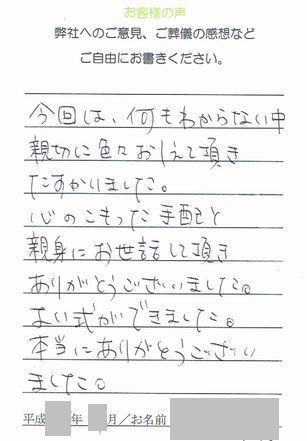 お客様の声
弊社へのご意見、ご葬儀の感想など
ご自由にお書きください。
今回は、何もわからない中
親切に色々おしえて頂き
たすかりました。
心のこもった手配と
親身にお世話して頂き
ありがとうございました。
よい式ができました。
本当にありがとうござい
ました。
平成 年 月／お名前